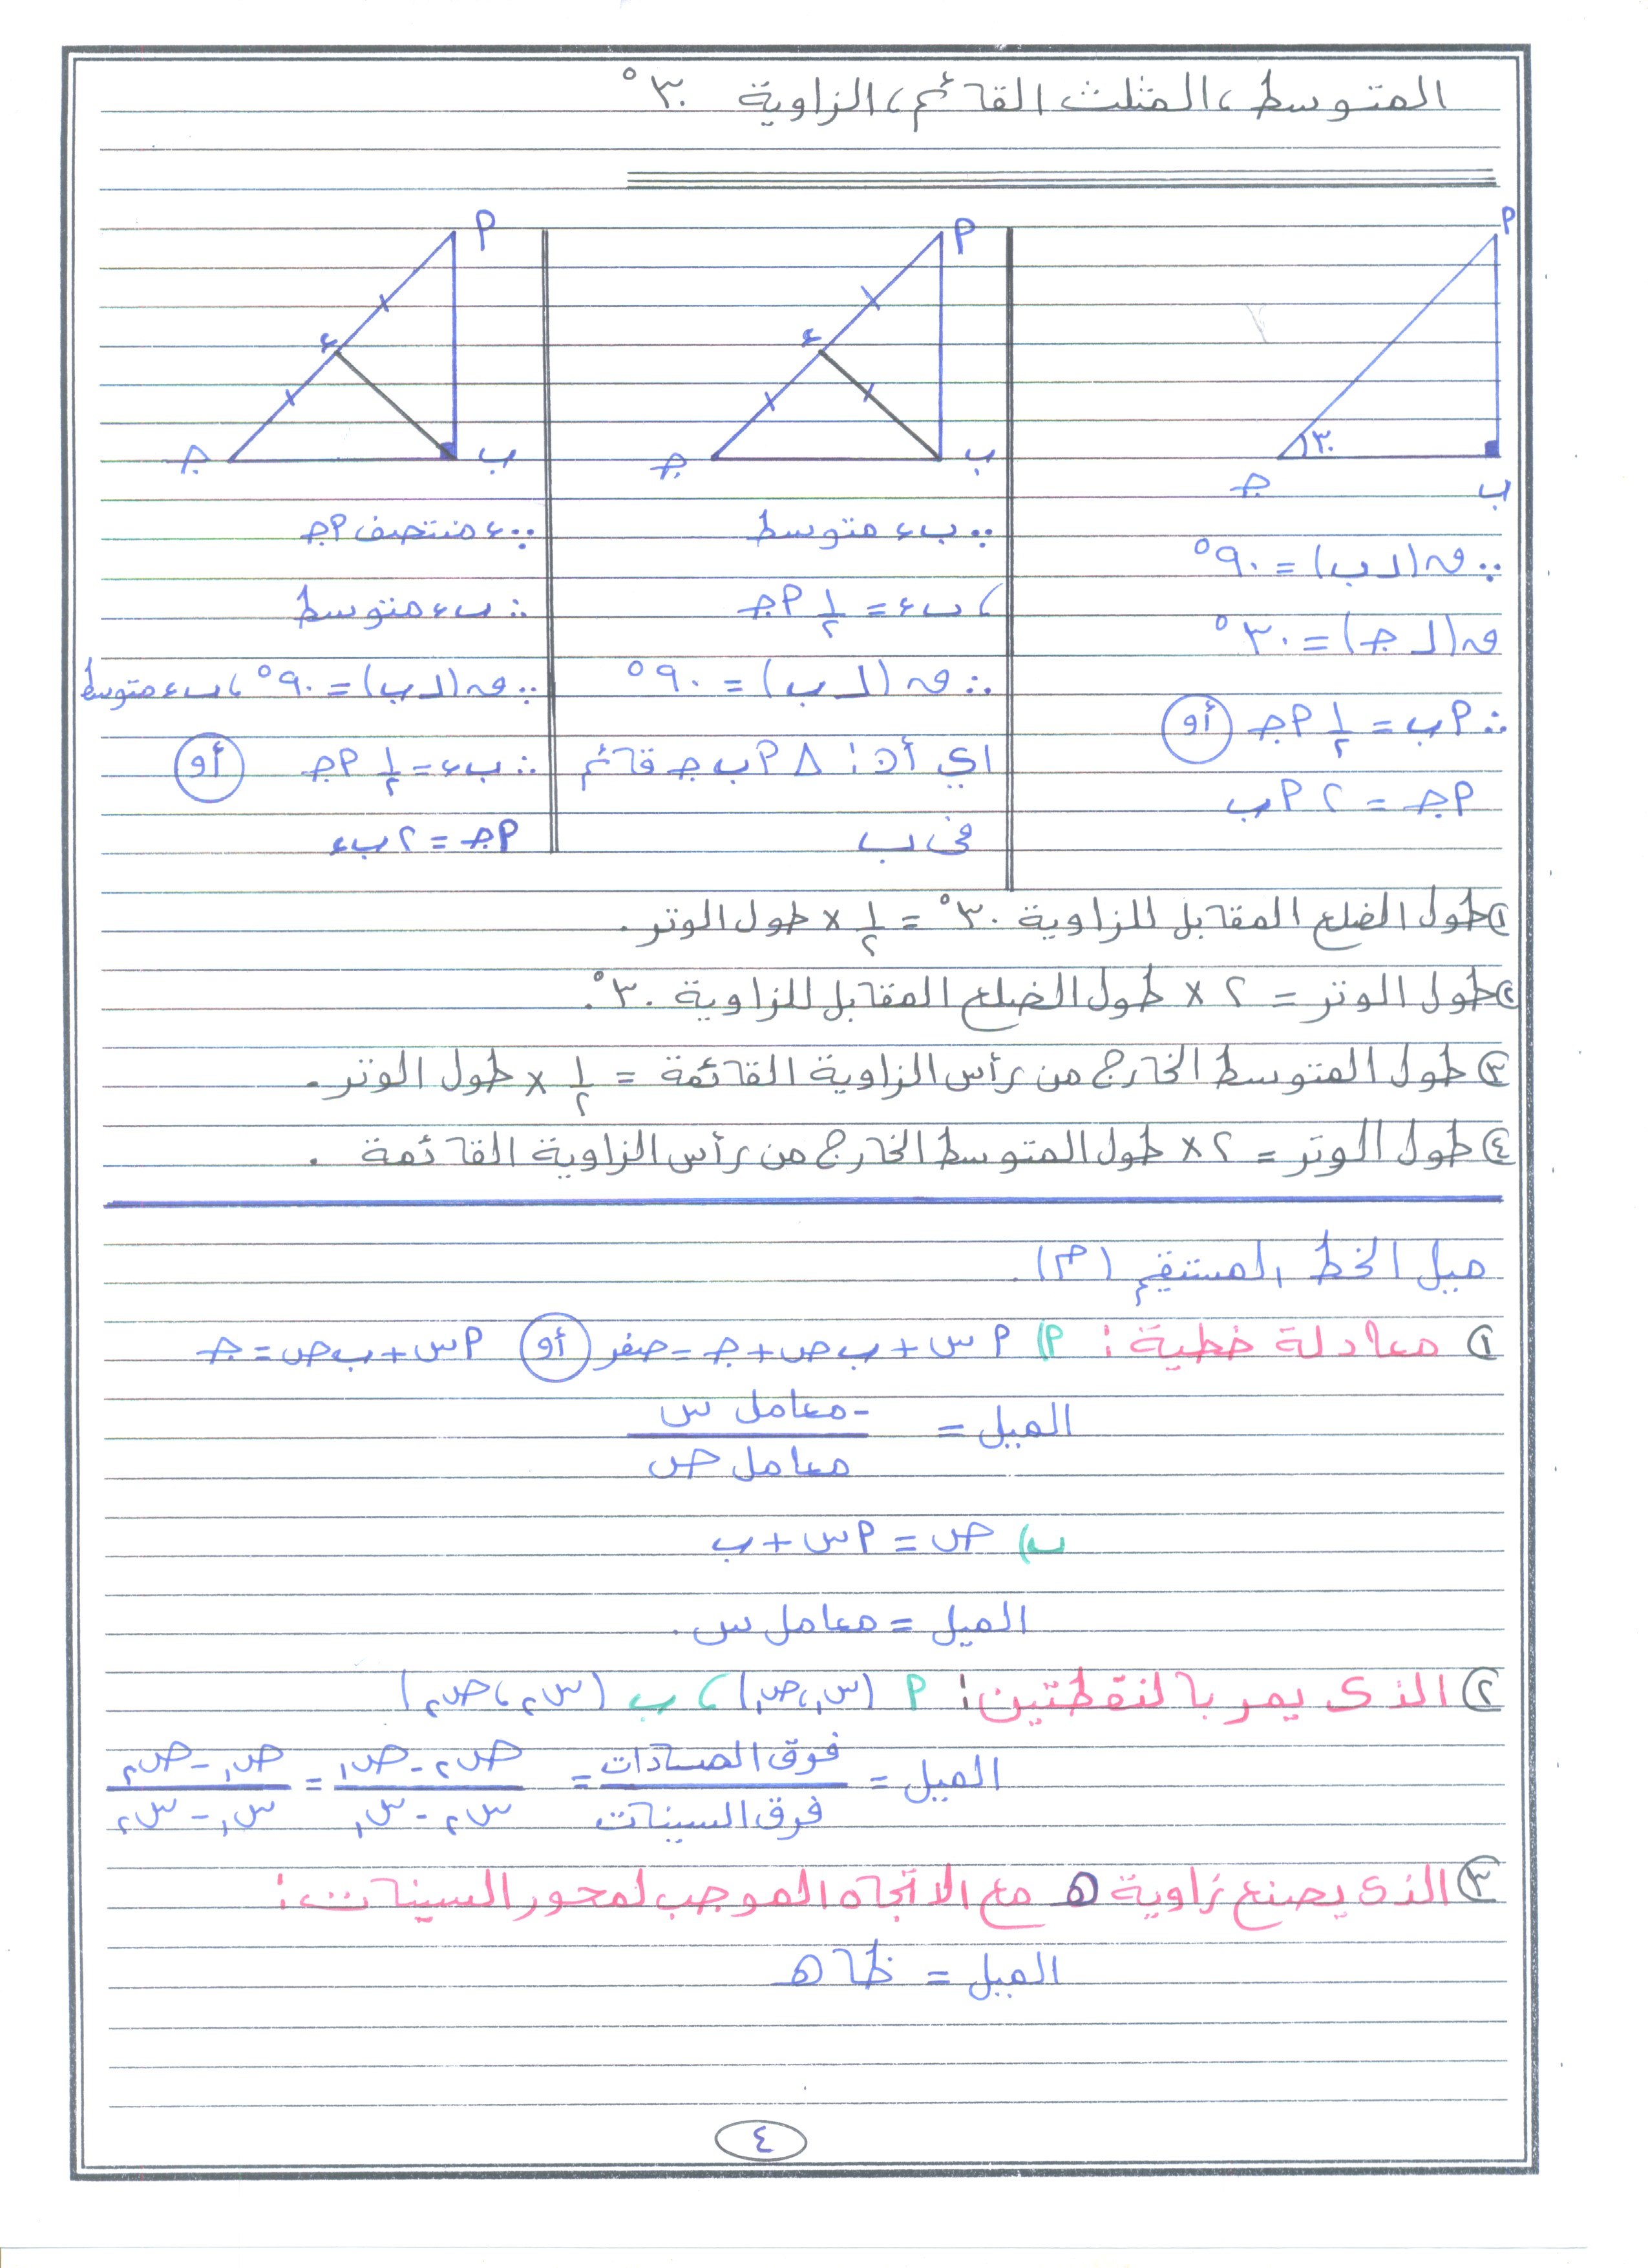 المتوسط ، المثلث القائم ، الزاوية ٣٠°
أ
ب
جـ
٣٠
∵ ق(ل ب) = ٩٠°
ق(ل جـ) = ٣٠°
∴ أب = ١/٢ أجـ أو
أجـ = ٢ أب
أ
ء
ب
جـ
∵ بء متوسط
، بء = ١/٢ أجـ
∴ ق(ل ب) = ٩٠°
اي أن: Δ أب جـ قائم
فى ب
أ
ء
ب
جـ
∵ ء منتصف أجـ
∴ بء متوسط
∵ ق(ل ب) = ٩٠° ، بء متوسط
∴ بء = ١/٢ أجـ أو
أجـ = ٢ بء
① طول الضلع المقابل للزاوية ٣٠° = ١/٢ × طول الوتر.
② طول الوتر = ٢ × طول الضلع المقابل للزاوية ٣٠°.
③ طول المتوسط الخارج من رأس الزاوية القائمة = ١/٢ × طول الوتر.
④ طول الوتر = ٢ × طول المتوسط الخارج من رأس الزاوية القائمة .
ميل الخط المستقيم (م).
① معادلة خطية: أ) أس + ب ص + جـ = صفر أو أس + ب ص = جـ
الميل = -معامل س / معامل ص
ب) ص = أس + ب
الميل = معامل س.
② الذى يمر بالنقطتين: أ (س١، ص١) ، ب (س٢، ص٢)
الميل = فوق الصادات / فرق السينات = ص٢ - ص١ / س٢ - س١ = ص١ - ص٢ / س١ - س٢
③ الذى يصنع زاوية هـ مع الاتجاه الموجب لمحور السينات:
الميل = ظا هـ
٤